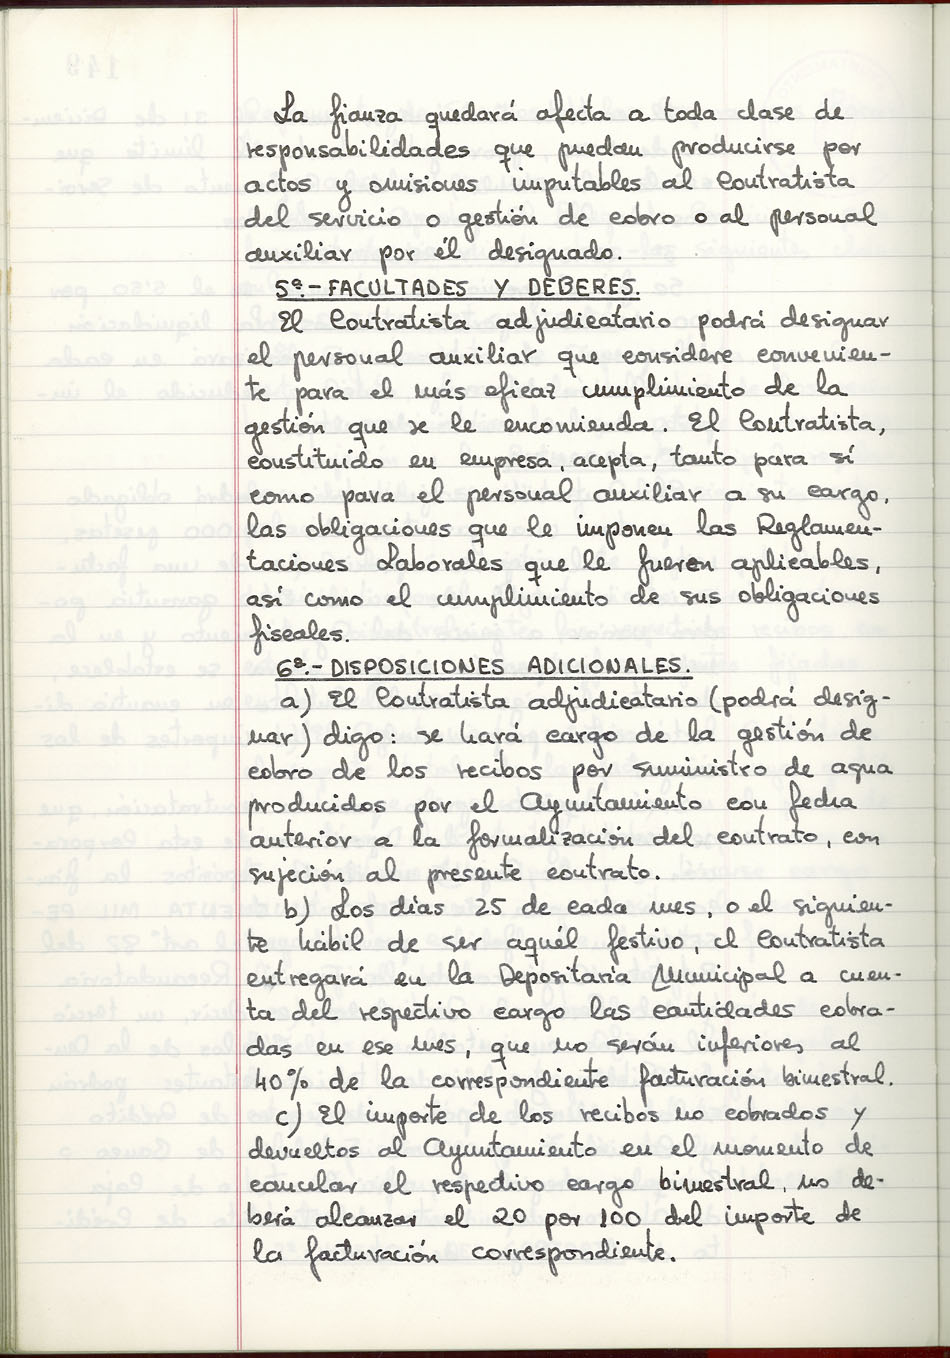 La fianza quedará afecta a toda clase de
responsabilidades que puedan producirse por
actos y omisiones imputables al Contratista
del servicio o gestión de cobro o al personal
auxiliar por él designado.
5ª.- FACULTADES Y DEBERES.
El Contratista adjudicatario podrá designar
el personal auxiliar que considere convenien-
te para el más eficaz cumplimiento de la
gestión que se le encomienda. El Contratista,
constituído en empresa, acepta, tanto para sí
como para el personal auxiliar a su cargo,
las obligaciones que le imponen las Reglamen-
taciones Laborales que le fueren aplicables,
así como el cumplimiento de sus obligaciones
fiscales.
6ª.- DISPOSICIONES ADICIONALES.
a) El Contratista adjudicatario (podrá desig-
nar) digo: se hará cargo de la gestión de
cobro de los recibos por suministro de agua
producidos por el Ayuntamiento con fecha
anterior a la formalización del contrato, con
sujeción al presente contrato.
b) Los días 25 de cada mes, o el siguien-
te hábil de ser aquél festivo, el Contratista
entregará en la Depositaría Municipal a cuen-
ta del respectivo cargo las cantidades cobra-
das en ese mes, que no serán inferiores al
40% de la correspondiente facturación bimestral.
c) El importe de los recibos no cobrados y
devueltos al Ayuntamiento en el momento de
cancelar el respectivo cargo bimestral, no de-
berá alcanzar el 20 por 100 del importe de
la facturación correspondiente.